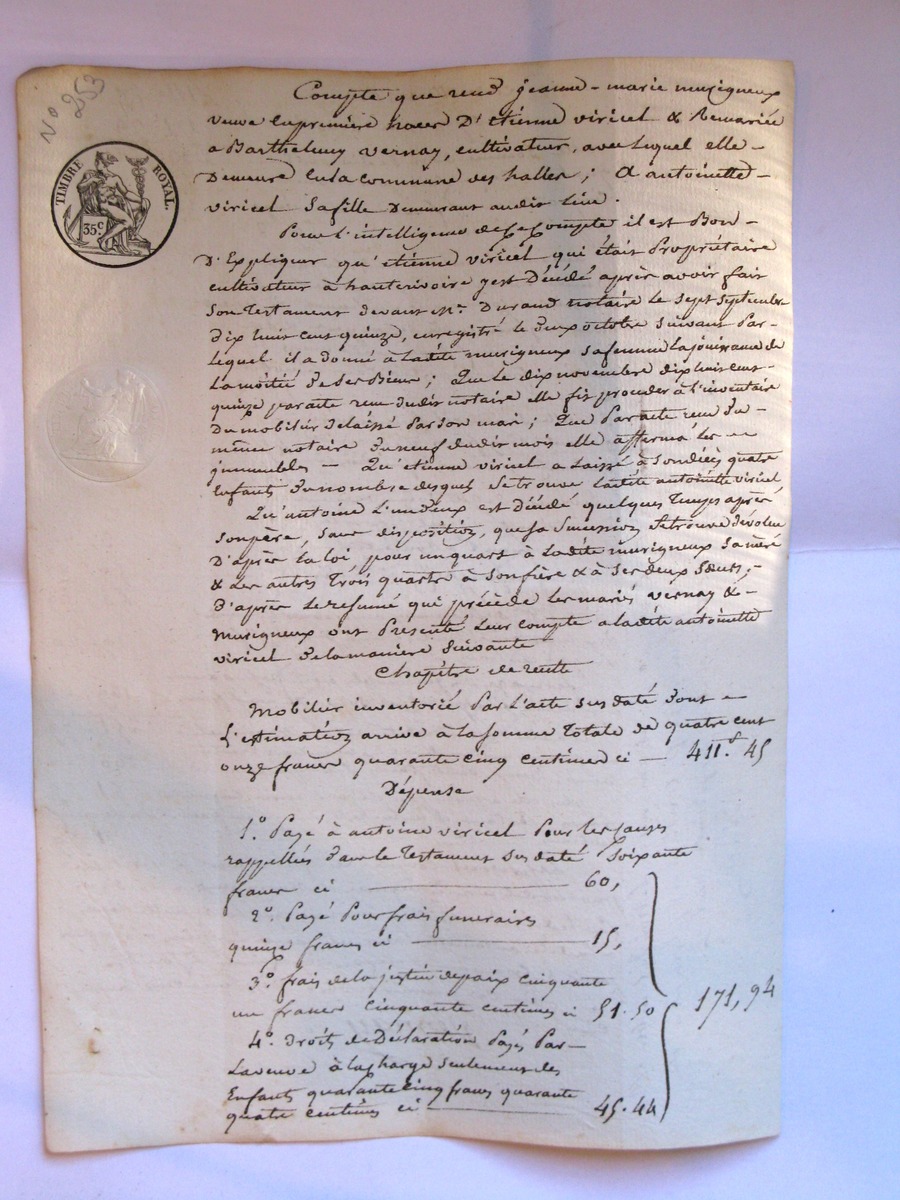 N° 253
TIMBRE ROYAL.
35c
Compte que rend jeanne-marie murigneux
veuve en première noces D'etienne viricel & Remariée
a Barthelemy vernay, cultivateur, avec lequel elle
Demeure en la commune des halles; A antoinette
viricel sa fille Demeurant audit lieu.
Pour L'intelligence de ce Compte il est Bon
D'Expliquer qu'etienne viricel qui était Propriétaire
cultivateur à hauterivoire y est Décédé après avoir fait
Son Testament devant Me. Durand notaire le sept Septembre
dix huit cent quinze, enregistré le deux octobre suivant Par
lequel il a donné à Ladite murigneux sa femme La jouissance de
La moitié de ses Biens; Que Le dix novembre dix huit cent
quinze par acte reçu dudit notaire elle fit proceder à l'inventaire
Du mobilier Delaissé Par son mari; Que Par acte reçu du
même notaire du neuf dudit mois elle affermà les
immeubles — Qu'etienne viricel a Laissé à son décès quatre
Enfants du nombre desquels Se trouve Ladite antoinette viricel
Qu'antoine L'un d'eux est décédé quelques Temps après
son père, Sans disposition, que sa Succession Se trouve dévolue
D'après La loi, pour un quart à Ladite murigneux sa mère
& Les autres Trois quarts à son frère & à Ses deux Sœurs;
D'après Le resumé qui précède Les mariés vernay &
Murigneux ont Presenté Leur compte a ladite antoinette
viricel de la manière Suivante
Chapitre de recette
Mobilier inventorié Par L'acte susdaté dont
L'estimation arrive à la somme Totale de quatre cent
onze francs quarante cinq centimes ci — 411.f 45
Dépense
1.° Payé à antoine viricel Pour les causes
rappellées dans le Testament susdaté Soixante
francs ci — 60,
2.° Payé Pour frais funeraires
quinze francs ci — 15,
3.° frais de la justice de paix cinquante
un francs cinquante centimes ci 51.50
171,94
4.° Droits de Déclaration Payés Par
La veuve à la charge seulement des
Enfants quarante cinq francs quarante
quatre centimes ci — 45.44